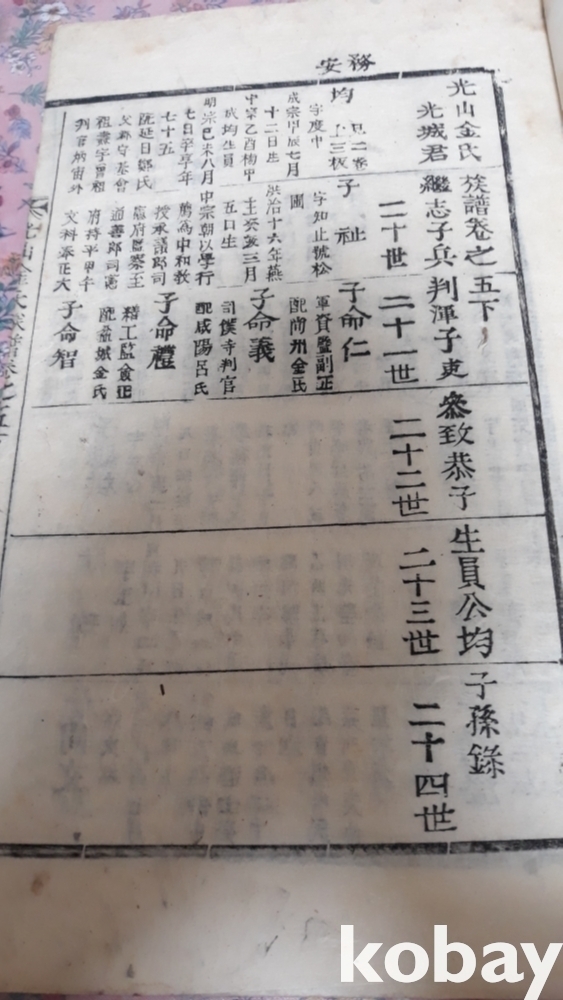 務安
光山金氏族譜卷之五下
光城君繼志子兵判渾子吏參致恭子生員公均子孫錄
二十世
二十一世
二十二世
二十三世
二十四世
均
見二卷
上三板
字度中
成宗甲辰七月
十二日生
中宗乙酉
成均生員
明宗己未八月
七日卒享年
七十五
配延日鄭氏
父
子祉
字知止號松
圃
弘治十六年燕
山癸亥三月
五日生
中宗朝以學行
薦為中和敎
授承議郎司
憲府監察
通善郎司憲
府持平甲午
文科奉正大
子命仁
軍資監副正
配尚州金氏
子命義
司僕寺判官
配咸陽呂氏
子命禮
繕工監僉正
配盆城金氏
子命智
kobay